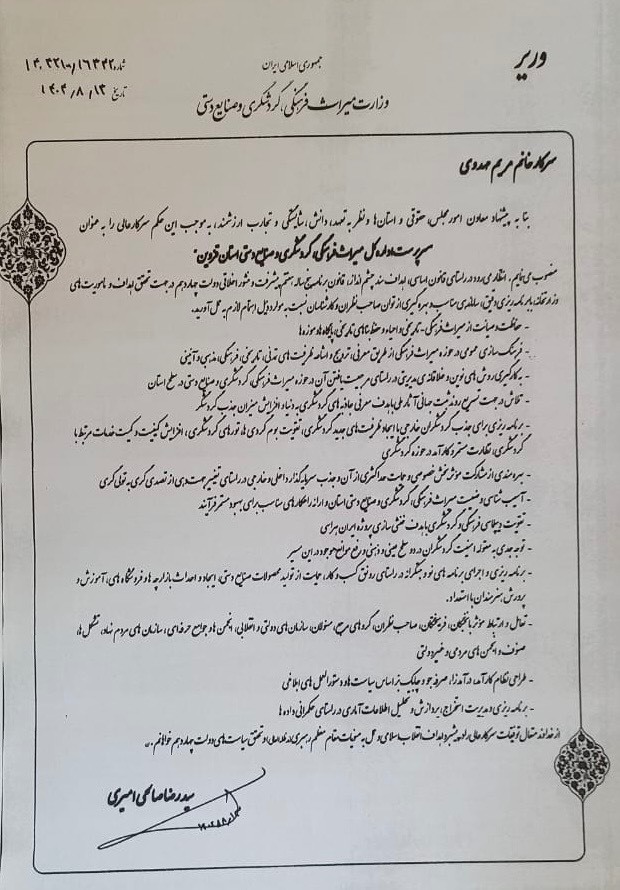 وزیر
جمهوری اسلامی ایران
وزارت میراث فرهنگی، گردشگری و صنایع دستی
شماره ۱۴۰۴۲۱۰/۱۶۳۴۲
تاریخ ۱۴۰۴/۸/۱۳
سرکار خانم مریم مهدوی
بنا به پیشنهاد معاون امور مجلس، حقوقی و استان‌ها و نظر به تعهد، دانش، شایستگی و تجارب ارزشمند، به موجب این حکم سرکار عالی را به عنوان
سرپرست اداره کل میراث فرهنگی، گردشگری و صنایع دستی استان قزوین"
منصوب می‌نمایم. انتظار می‌رود در راستای قانون اساسی، اهداف سند چشم انداز، قانون برنامه پنج‌ساله هفتم پیشرفت و منشور اخلاقی دولت چهاردهم در جهت تحقق اهداف و ماموریت‌های
وزارتخانه، با برنامه ریزی دقیق، ساماندهی مناسب و بهره گیری از توان صاحب نظران و کارشناسان نسبت به موارد ذیل اهتمام لازم به عمل آورید.
- حفاظت و صیانت از میراث فرهنگی - تاریخی و احیاء و حفظ بناهای تاریخی، پایگاه‌ها و موزه‌ها
- فرهنگ سازی عمومی در حوزه میراث فرهنگی از طریق معرفی، ترویج و اشاعه ظرفیت های تمدنی، تاریخی، فرهنگی، مذهبی و آئینی
- به کارگیری روش های نوین و خلاقانه مدیریتی در راستای مرجعیت یافتن آن در حوزه میراث فرهنگی، گردشگری و صنایع دستی در سطح استان
- تلاش در جهت تسریع روند ثبت جهانی آثار ملی با هدف معرفی جاذبه های گردشگری به دنیا و افزایش میزان جذب گردشگر
- برنامه ریزی برای جذب گردشگران خارجی با ایجاد ظرفیت های جدید گردشگری، تقویت بوم گردی ها و تورهای گردشگری، افزایش کیفیت و کمیت خدمات مرتبط با
گردشگری، نظارت مستمر و کارآمد در حوزه گردشگری
- بهره مندی از مشارکت موثر بخش خصوصی و حمایت حداکثری از آن و جذب سرمایه گذار داخلی و خارجی در راستای تغییر جهت دهی از تصدی گری به تولی گری
- آسیب شناسی وضعیت میراث فرهنگی، گردشگری و صنایع دستی استان و ارائه راهکارهای مناسب برای بهبود مستمر فرآیند
- تقویت دیپلماسی فرهنگی و گردشگری با هدف خنثی سازی پروژه ایران هراسی
- توجه جدی به مقوله امنیت گردشگران در دو سطح عینی و ذهنی و رفع موانع موجود در این مسیر
- برنامه ریزی و اجرای برنامه های نو و مبتکرانه در راستای رونق کسب و کار، حمایت از تولید محصولات صنایع دستی، ایجاد و احداث بازارچه ها و فروشگاه های، آموزش و
پرورش هنرمندان با استعداد.
- تعامل و ارتباط مؤثر با نخبگان، فرهیختگان، صاحب نظران، گروه های مرجع، مسئولان، سازمان های دولتی و انقلابی، انجمن ها و جوامع حرفه ای، سازمان های مردم نهاد، تشکل ها،
صنوف و انجمن های مردمی و غیر دولتی
- طراحی نظام کارآمد، درآمدزا، صرفه جو و چابک بر اساس سیاست ها و دستورالعمل های ابلاغی
- برنامه ریزی و مدیریت استخراج، پردازش و تحلیل اطلاعات آماری در راستای حکمرانی داده ها
از خداوند متعال توفیقات سرکار عالی را در پیشبرد اهداف انقلاب اسلامی و عمل به منویات مقام معظم رهبری (مدظله العالی) و تحقق سیاست های دولت چهاردهم خواهانم.
سیدرضا صالحی امیری